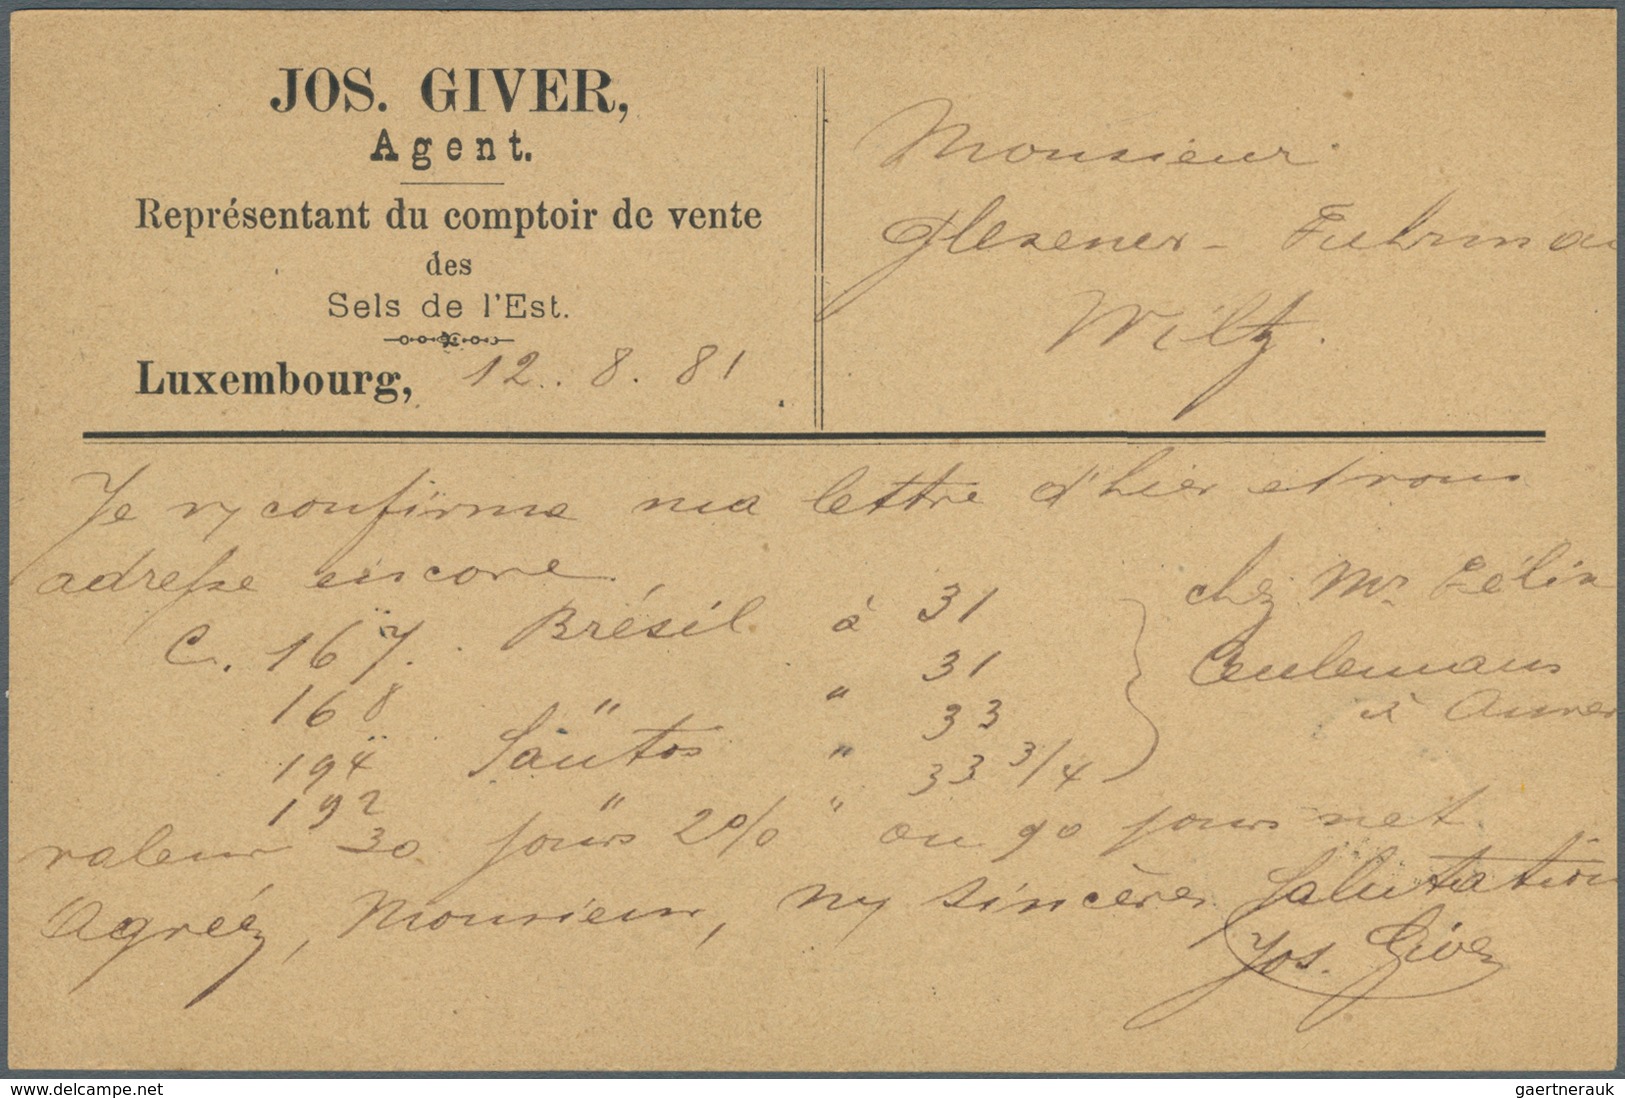 JOS. GIVER,
Agent.
Représentant du comptoir de vente
des
Sels de l'Est.
Luxembourg, 12. 8. 81
Monsieur
Glesener - Fuhrman
Wiltz.
Je confirme ma lettre d'hier et vous
adresse encore
C. 167. Brésil à 31
168 " " 31
194 Santos " 33
192 " " 33 3/4
chez Mr Félix
Ceulemans
à Anvers
valeur 30 jours 2% ou 90 jours net
Agréez, Monsieur, my sincères salutation
Jos. Giver
delcampe.net
gaertnerauk